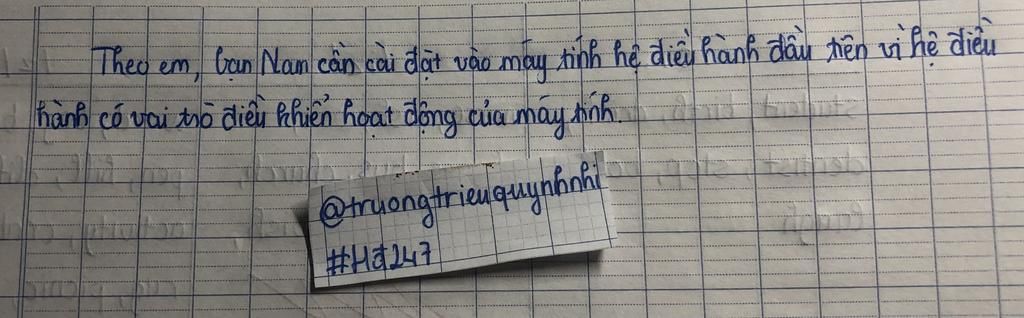 Theo em, bạn Nam cần cài đặt vào máy tính hệ điều hành đầu tiên vì hệ điều
hành có vai trò điều khiển hoạt động của máy tính.
@truongtrieuquynhnhi
#Hđ247